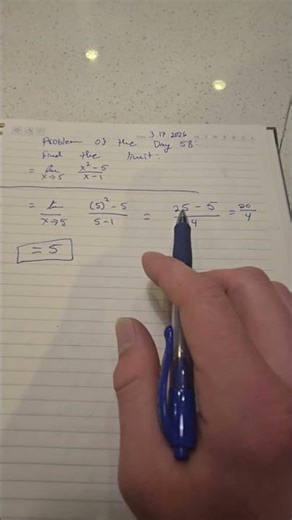 3.17.2026
Problem of the Day 58:
Find the limit:
= lim x→5 x²-5 / x-1
= lim x→5 (5)²-5 / 5-1 = 25-5 / 4 = 20/4
= 5